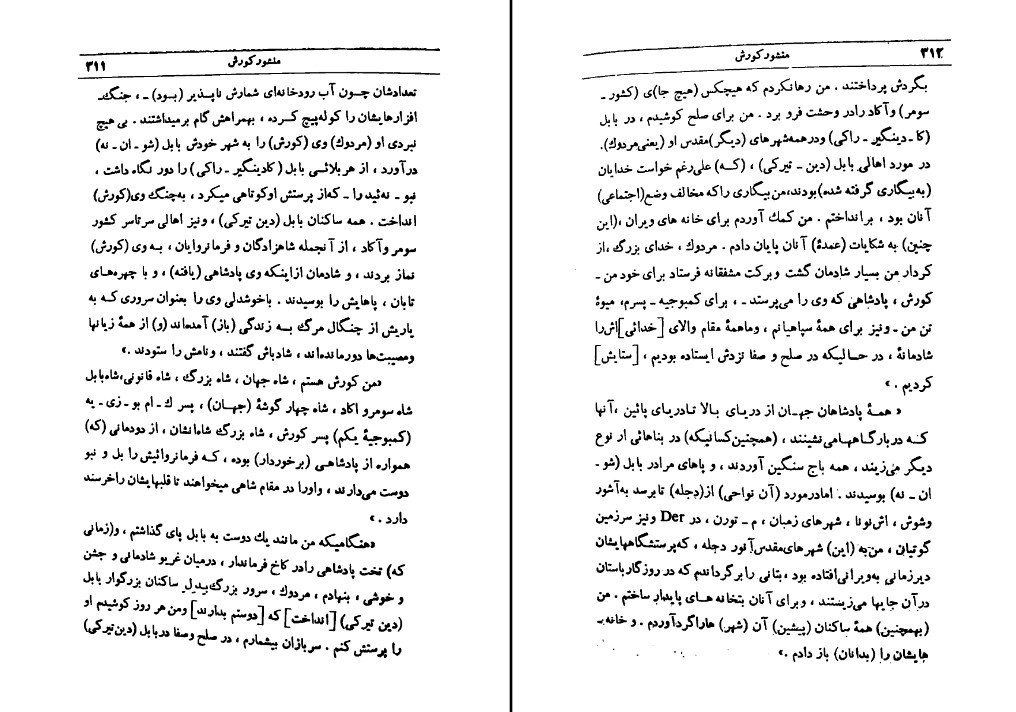 ۳۱۱
منشور کورش
تعدادشان چون آب رودخانه‌ای شمارش ناپذیر (بود) ـ ، جنگ‌ـ
افزارهایشان را کوله‌پیچ کرده ، بهمراهش گام برمیداشتند . بی هیچ
نبردی او (مردوك) وی (کورش) را به شهر خودش بابل (شو ـ ان ـ نه)
درآورد ، از هر بلائی بابل (کادینگیر ـ راکی) را دور نگاه داشت ،
نبو ـ نه‌ئید را ـ که‌از پرستش اوکوتاهی میکرد ، به‌چنگ وی(کورش)
انداخت . همه ساکنان بابل (دین تیرکی) ، ونیز اهالی سرتاسر کشور
سومر وآکاد ، از آنجمله شاهزادگان و فرمانروایان ، به وی (کورش)
نماز بردند ، و شادمان ازاینکه وی پادشاهی (یافته) ، و با چهره‌های
تابان ، پاهایش را بوسیدند . باخوشدلی وی را بعنوان سروری که به
یاریش از چنگال مرگ به زندگی (باز) آمده‌اند (و) از همهٔ زیانها
ومصیبت‌ها دورمانده‌اند ، شادباش گفتند ، ونامش را ستودند .»
«من کورش هستم ، شاه جهان ، شاه بزرگ ، شاه قانونی،شاه‌بابل
شاه سومرو اکاد ، شاه چهار گوشهٔ (جهان) ، پسر ك ـ ام بو ـ زی ـ یه
(کمبوجیهٔ یکم) پسر کورش ، شاه بزرگ شاه‌انشان ، از دودمانی (که)
همواره از پادشاهی (برخوردار) بوده ، که فرمانروائیش را بل و نبو
دوست می‌دارند ، واورا در مقام شاهی میخواهند تا قلبهایشان راخرسند
دارد .»
«هنگامیکه من مانند یك دوست به بابل پای گذاشتم ، و(زمانی
که) تخت پادشاهی رادر کاخ فرماندار ، درمیان غریو شادمانی و جشن
و خوشی ، بنهادم ، مردوك ، سرور بزرگ‌بدل ساکنان بزرگوار بابل
(دین تیرکی) [انداخت] که [دوستم بدارند] ومن هر روز کوشیدم او
را پرستش کنم . سربازان بیشمارم ، در صلح وصفا دربابل (دین‌تیرکی)
۳۱۲
منشور کورش
بگردش پرداختند . من رهانکردم که هیچکس (هیچ جا)ی (کشور ـ
سومر) وآکاد رادر وحشت فرو برد . من برای صلح کوشیدم ، در بابل
(کا ـ دینگیر ـ راکی) ودرهمه‌شهرهای (دیگر)مقدس او (یعنی‌مردوك).
در مورد اهالی بابل (دین ـ تیرکی) ، (که) علی‌رغم خواست خدایان
(به‌بیگاری گرفته شده)بودند،من‌بیگاری راکه مخالف وضع(اجتماعی)
آنان بود ، برانداختم . من کمك آوردم برای خانه های ویران ،(این
چنین) به شکایات (عمدهٔ) آنان پایان دادم . مردوك ، خدای بزرگ ،از
کردار من بسیار شادمان گشت وبرکت مشفقانه فرستاد برای خود من ـ
کورش ، پادشاهی که وی را می‌پرستد ـ ، برای کمبوجیه ـ پسرم، میوهٔ
تن من ـ ونیز برای همهٔ سپاهیانم ، وماهمهٔ مقام والای [خدائی]اش‌را
شادمانهٔ ، در حالیکه در صلح و صفا نزدش ایستاده بودیم ، [ستایش]
کردیم . »
« همهٔ پادشاهان جهان از دریای بالا تادریای پائین ،آنها
که دربارگاههامی‌نشینند ، (همچنین‌کسانیکه) در بناهائی از نوع
دیگر می‌زیند ، همه باج سنگین آوردند ، و پاهای مرادر بابل (شو ـ
ان ـ نه) بوسیدند . امادرمورد (آن نواحی) از(دجله) تابرسد به‌آشور
وشوش ، اش‌نونا ، شهرهای زمبان ، م ـ تورن ، در Der ونیز سرزمین
گوتیان ، من‌به (این) شهرهای‌مقدس‌آنور دجله ، که‌پرستشگاههایشان
دیرزمانی به‌ویرانی‌افتاده بود ، بتانی را برگرداندم که در روزگارباستان
درآن جایها می‌زیستند ، وبرای آنان بتخانه های پایدار ساختم . من
(بهمچنین) همهٔ ساکنان (پیشین) آن (شهر) هاراگردآوردم . و خانه‌ـ
هایشان را (بدانان) باز دادم .»